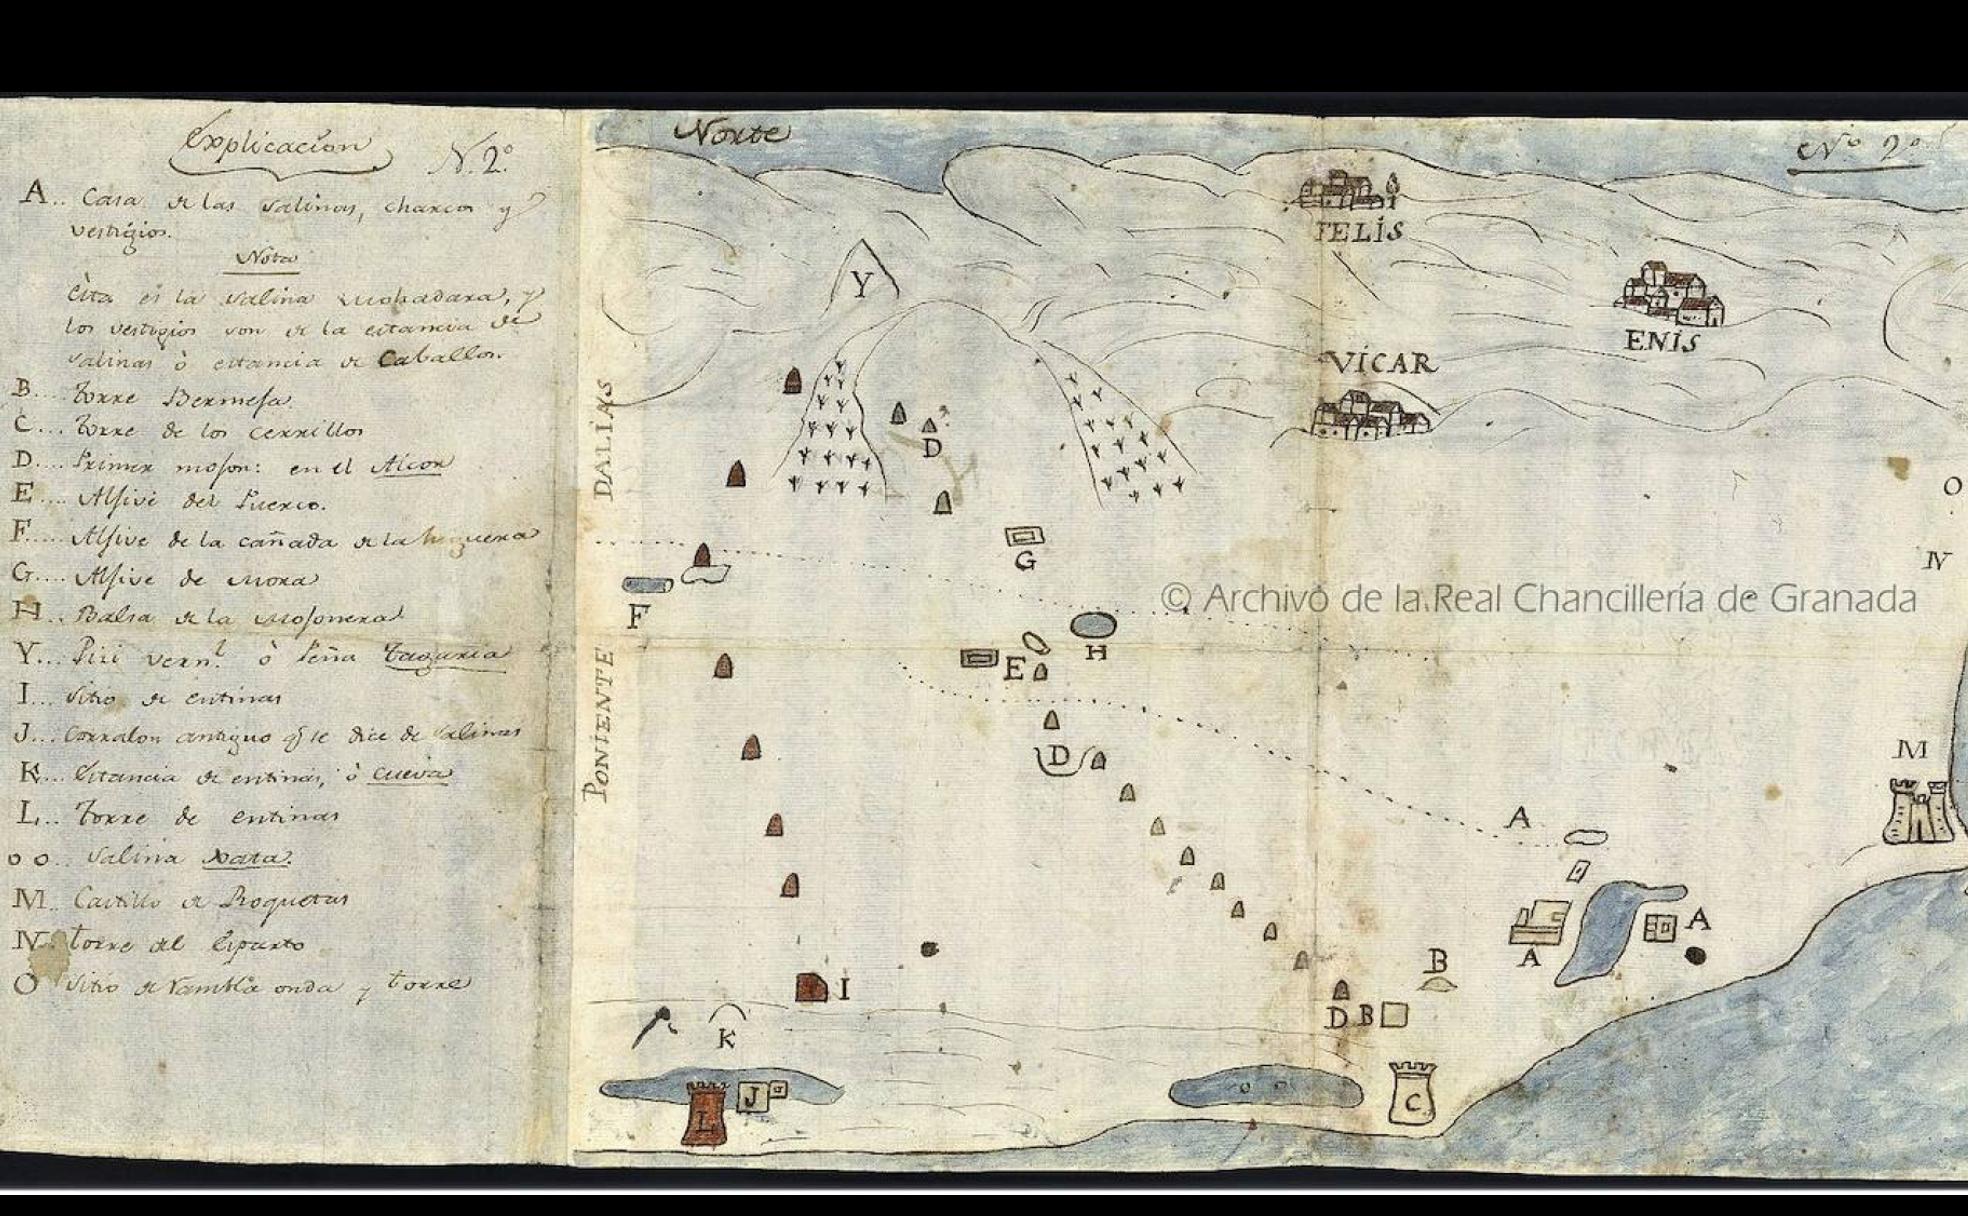 Explicacion
N. 2.º
A.. Casa de las salinas, charcos y
vestigios.
Nota
Esta es la salina Mohadara, y
los vestigios son de la estancia de
salinas ò estancia de Caballos.
B.... Torre Bermeja.
C... Torre de los cerrillos
D.... Primer mojon: en el Alcor
E.... Aljive del Puerco.
F..... Aljive de la cañada de la higuera
G.... Aljive de Mora
H.. Balsa de la Mojonera
Y... ò Peña
I... Sitio de entinas
J... Corralon antiguo q se dice de Salinas
K... Estancia de entinas, ò cueva
L... Torre de entinas
oo.. Salina
M.. Castillo de Roquetas
N. Torre del Esparto
O Sitio de rambla onda y torre
Norte
Nº 2º
FELIS
ENIS
VÍCAR
DALÍAS
PONIENTE
Y
D
G
F
H
E
D
O
N
M
A
A
A
B
D B
I
K
J
L
o o
C
© Archivo de la Real Chancillería de Granada